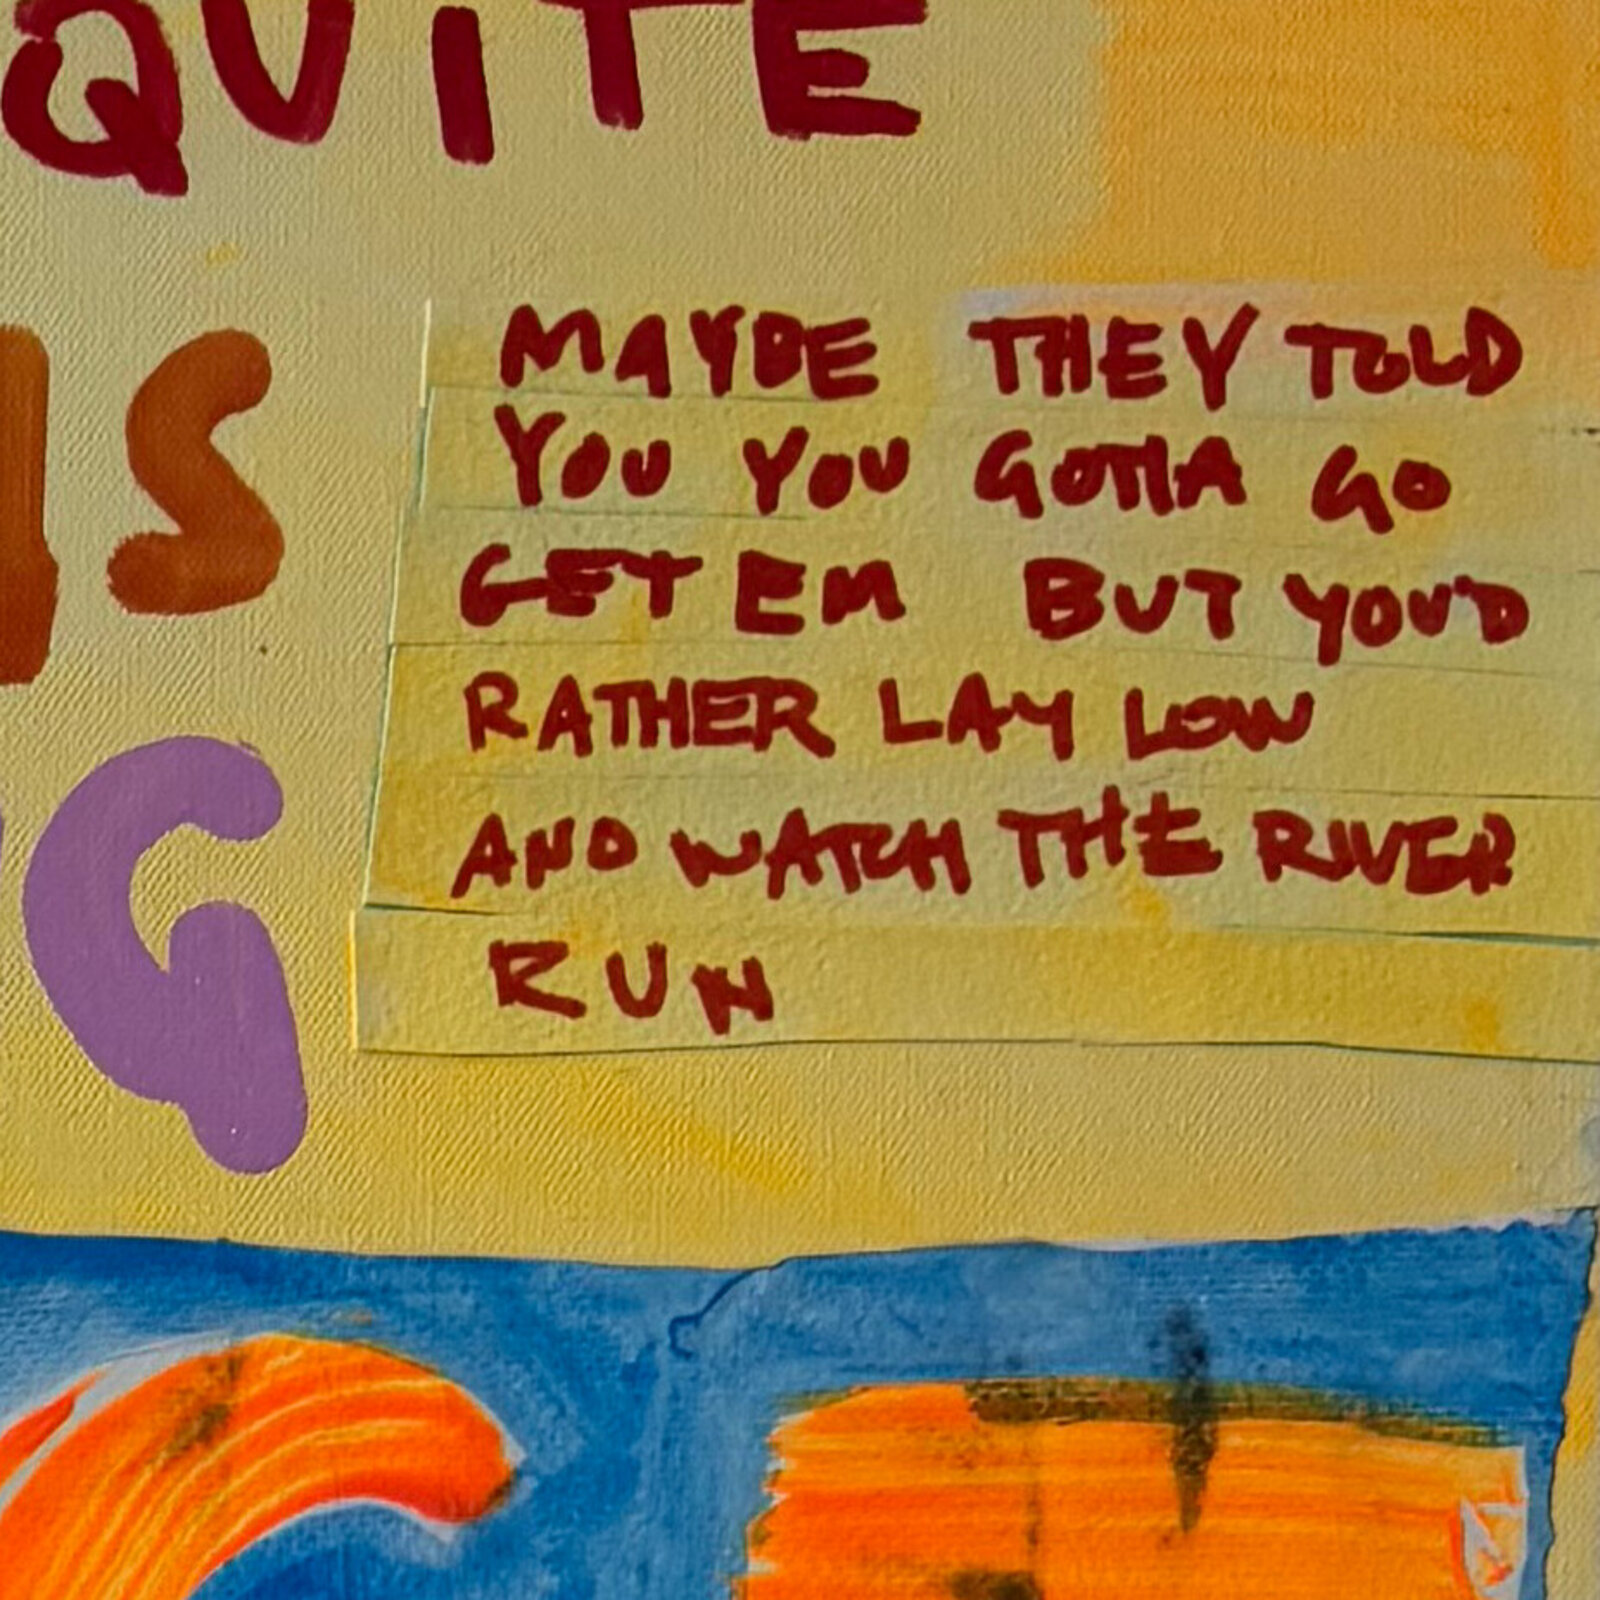 QUITE
IS
MAYBE THEY TOLD
YOU YOU GOTTA GO
GET EM BUT YOU'D
RATHER LAY LOW
AND WATCH THE RIVER
RUN
G